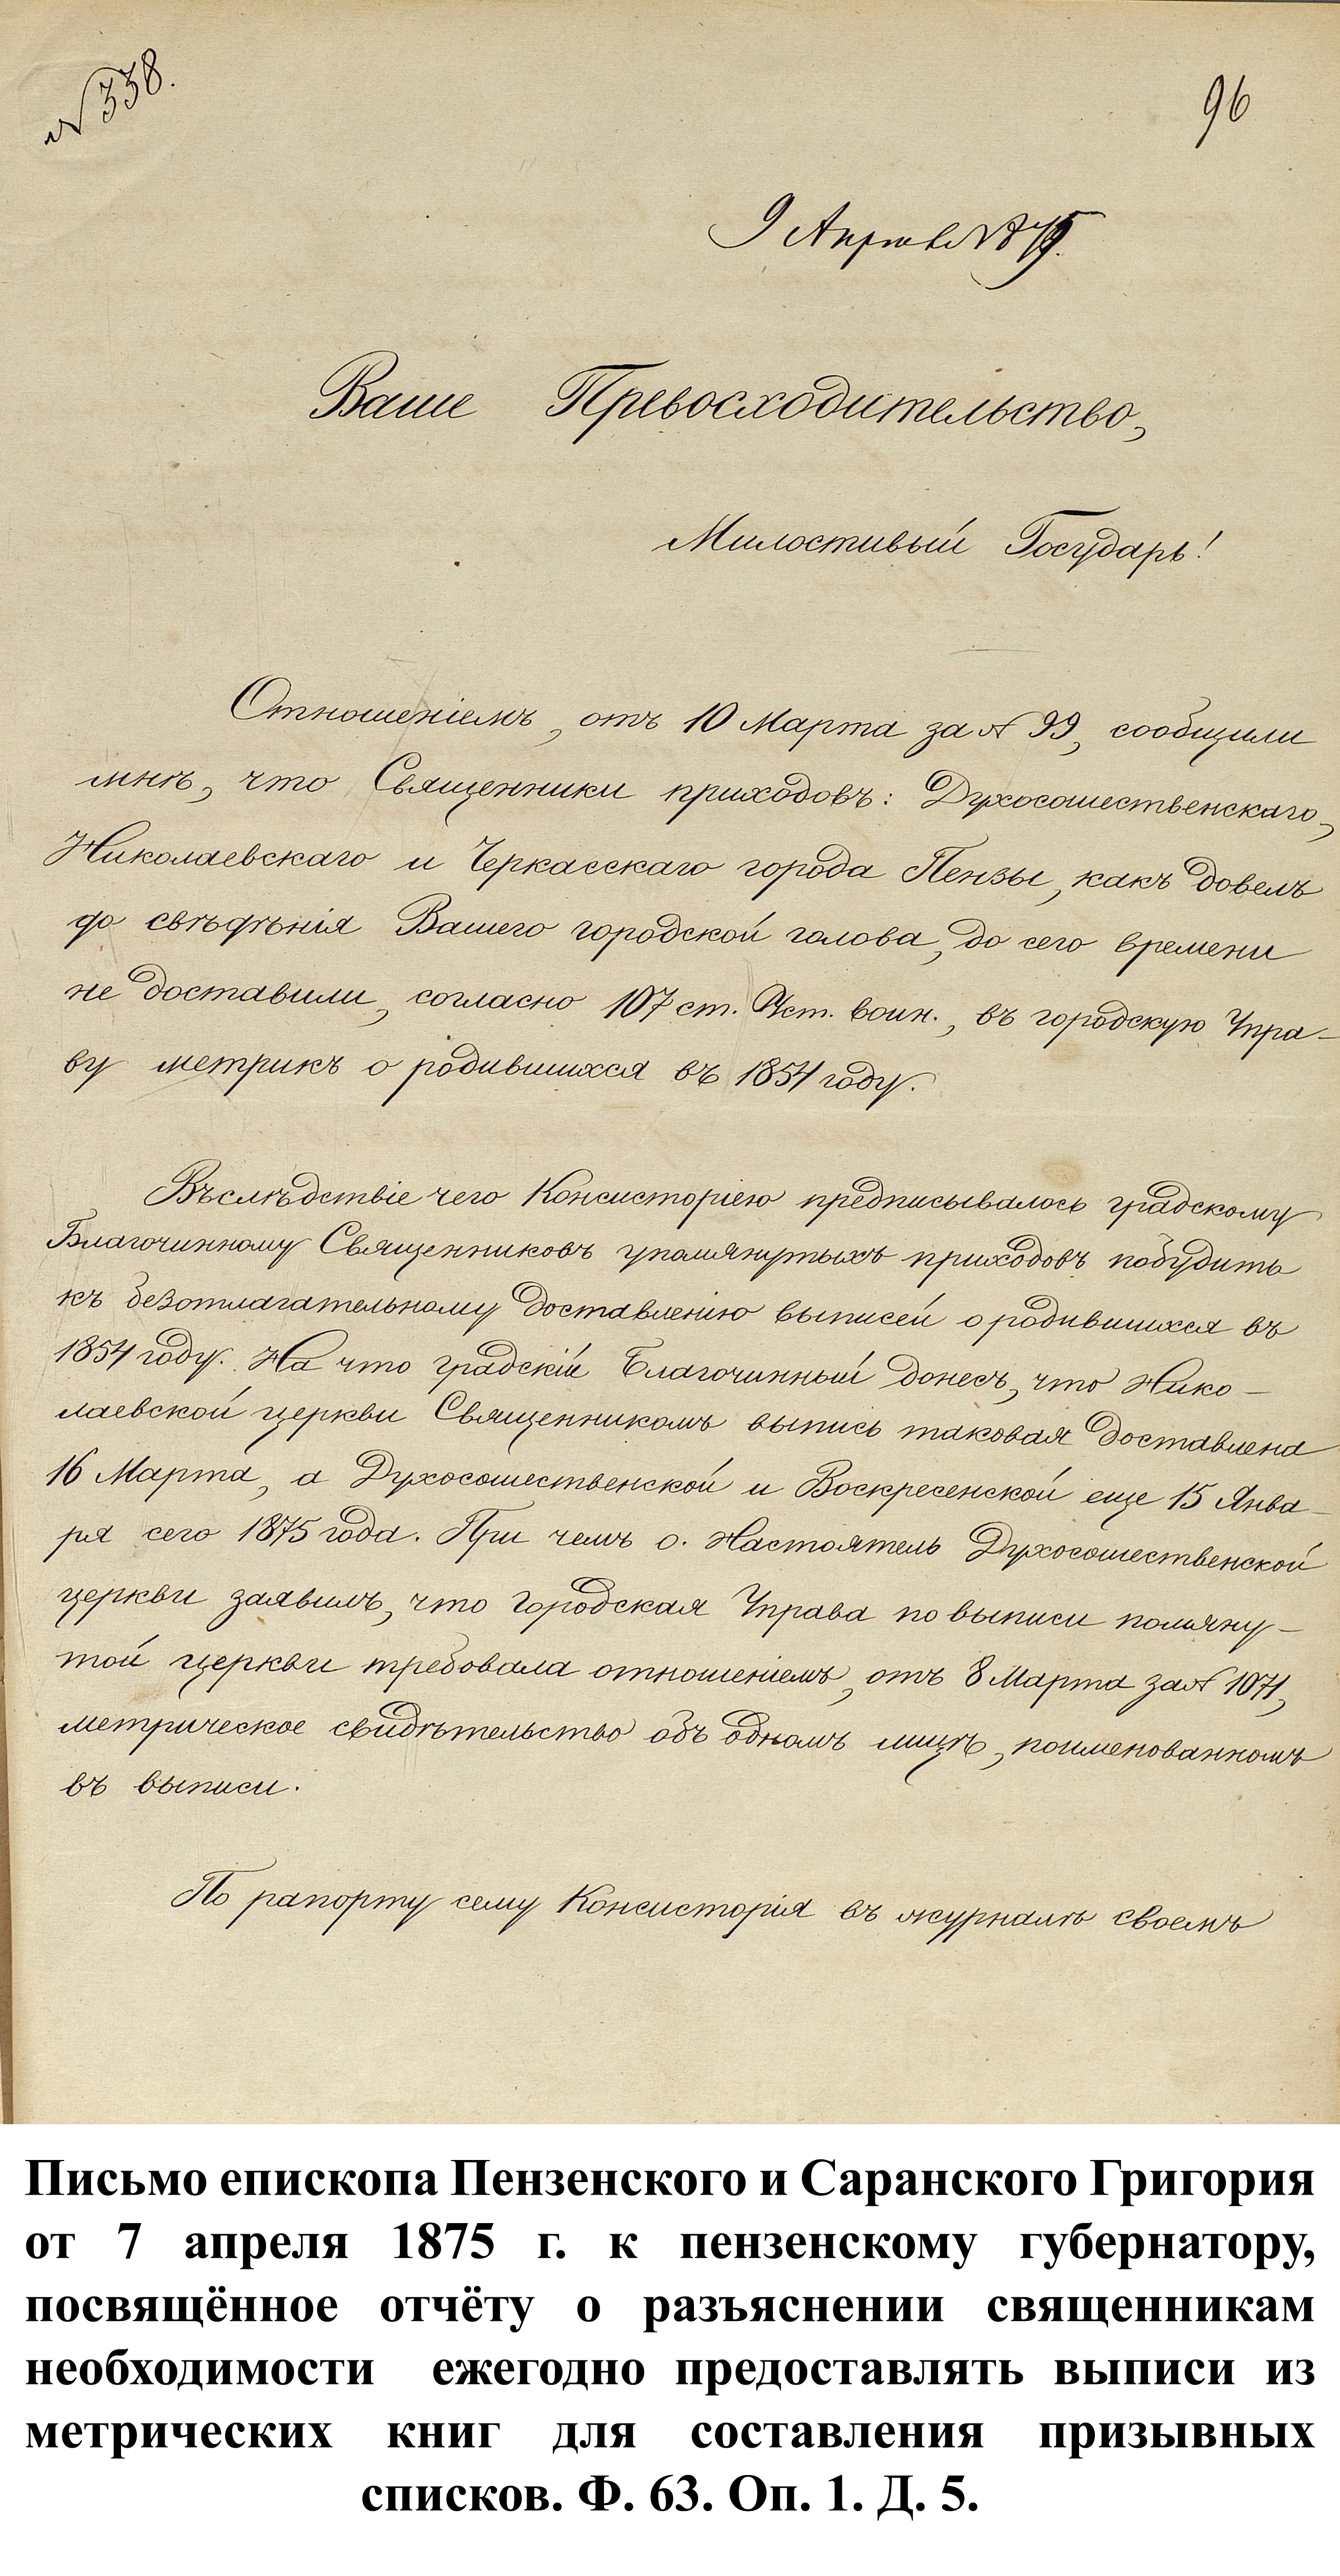 № 338.
96
9 Апреля 1875.
Ваше Превосходительство,
Милостивый Государь!
Отношеніемъ, отъ 10 Марта за № 99, сообщили
мнѣ, что Священники приходовъ: Духосошественскаго,
Николаевскаго и Черкасскаго города Пензы, какъ довелъ
до свѣдѣнія Вашего городской голова, до сего времени
не доставили, согласно 107 ст. Уст. воин., въ городскую Упра-
ву метрикъ о родившихся въ 1854 году.
Въслѣдствіе чего Консисторіею предписывалось градскому
Благочинному Священниковъ упомянутыхъ приходовъ побудить
къ безотлагательному доставленію выписей о родившихся въ
1854 году. На что градскій Благочинный донесъ, что Нико-
лаевской церкви Священникомъ выпись таковая доставлена
16 Марта, а Духосошественской и Воскресенской еще 15 Янва-
ря сего 1875 года. При чемъ о. Настоятель Духосошественской
церкви заявилъ, что Городская Управа по выписи помяну-
той церкви требовала отношеніемъ, отъ 8 Марта за № 1071,
метрическое свидѣтельство объ одномъ лицѣ, поименованномъ
въ выписи.
По рапорту сему Консисторія въ журналѣ своемъ
Письмо епископа Пензенского и Саранского Григория
от 7 апреля 1875 г. к пензенскому губернатору,
посвящённое отчёту о разъяснении священникам
необходимости ежегодно предоставлять выписи из
метрических книг для составления призывных
списков. Ф. 63. Оп. 1. Д. 5.